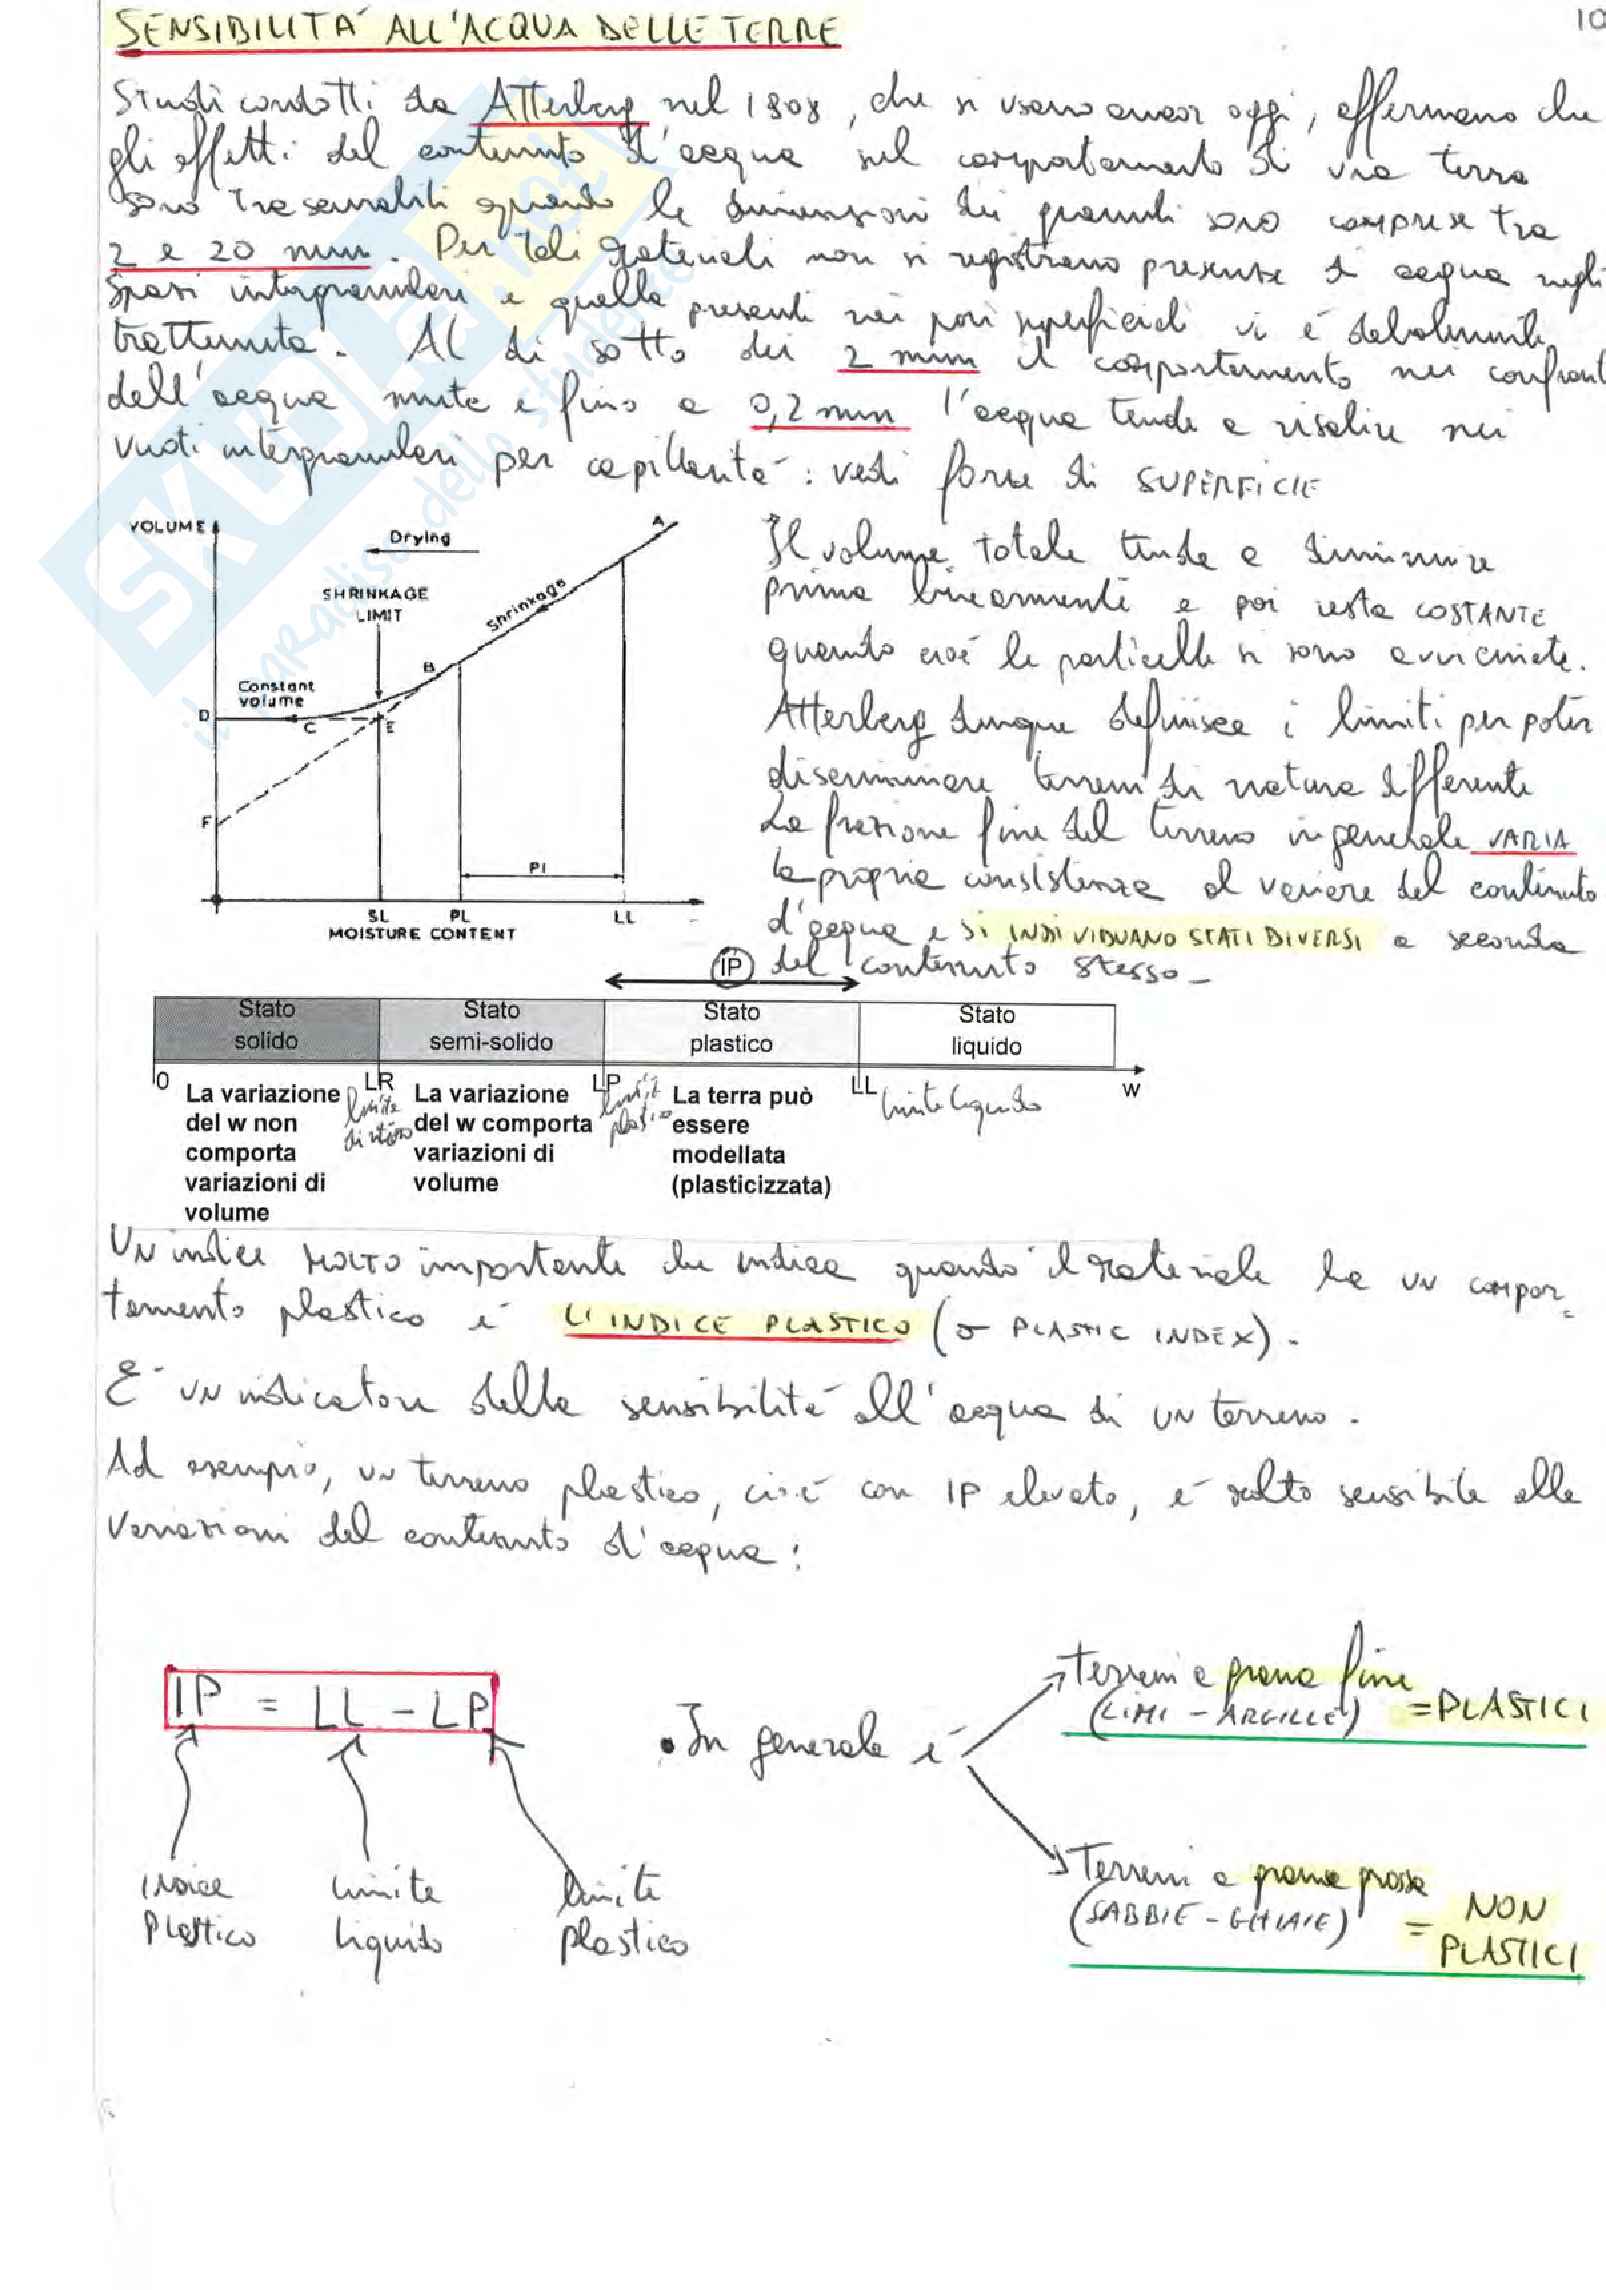 SENSIBILITÀ ALL'ACQUA DELLE TERRE
10
Studi condotti da Atterberg nel 1908, che si usano ancor oggi, affermano che
gli effetti del contenuto d'acqua sul comportamento di una terra
sono trascurabili quando le dimensioni dei granuli sono comprese tra
2 e 20 mm. Per tali materiali non si registrano presenze di acqua negli
spazi intergranulari e quella presenti nei pori superficiali vi è debolmente
trattenuta. Al di sotto dei 2 mm il comportamento nei confronti
dell'acqua muta e fino a 0,2 mm l'acqua tende a risalire nei
vuoti intergranulari per capillarità: vedi forze di SUPERFICIE
VOLUME
Drying
A
SHRINKAGE
LIMIT
Shrinkage
B
Constant
volume
D
C
E
F
PI
SL
PL
LL
MOISTURE CONTENT
Il volume totale tende a diminuire
prima linearmente e poi resta COSTANTE
quando cioè le particelle si sono avvicinate.
Atterberg dunque definisce i limiti per poter
discriminare terreni di natura differente
La frazione fine del terreno in generale VARIA
la propria consistenza al variare del contenuto
d'acqua e SI INDIVIDUANO STATI DIVERSI a seconda
del contenuto stesso-
IP
Stato
solido
Stato
semi-solido
Stato
plastico
Stato
liquido
0
LR
LP
LL
w
limite di ritiro
limite plastico
limite liquido
La variazione
del w non
comporta
variazioni di
volume
La variazione
del w comporta
variazioni di
volume
La terra può
essere
modellata
(plasticizzata)
UN indice MOLTO importante che indica quando il materiale ha un compor-
tamento plastico è L'INDICE PLASTICO (o PLASTIC INDEX).
È UN indicatore della sensibilità all'acqua di UN terreno.
Ad esempio, un terreno plastico, cioè con IP elevato, è molto sensibile alle
variazioni del contenuto d'acqua:
IP = LL - LP
INDICE
PLASTICO
limite
liquido
limite
plastico
• In generale è
Terreni a grana fine
(LIMI - ARGILLE) = PLASTICI
Terreni a grana grossa
(SABBIE - GHIAIE) = NON
PLASTICI
SKUOLA.net
il paradiso dello studente